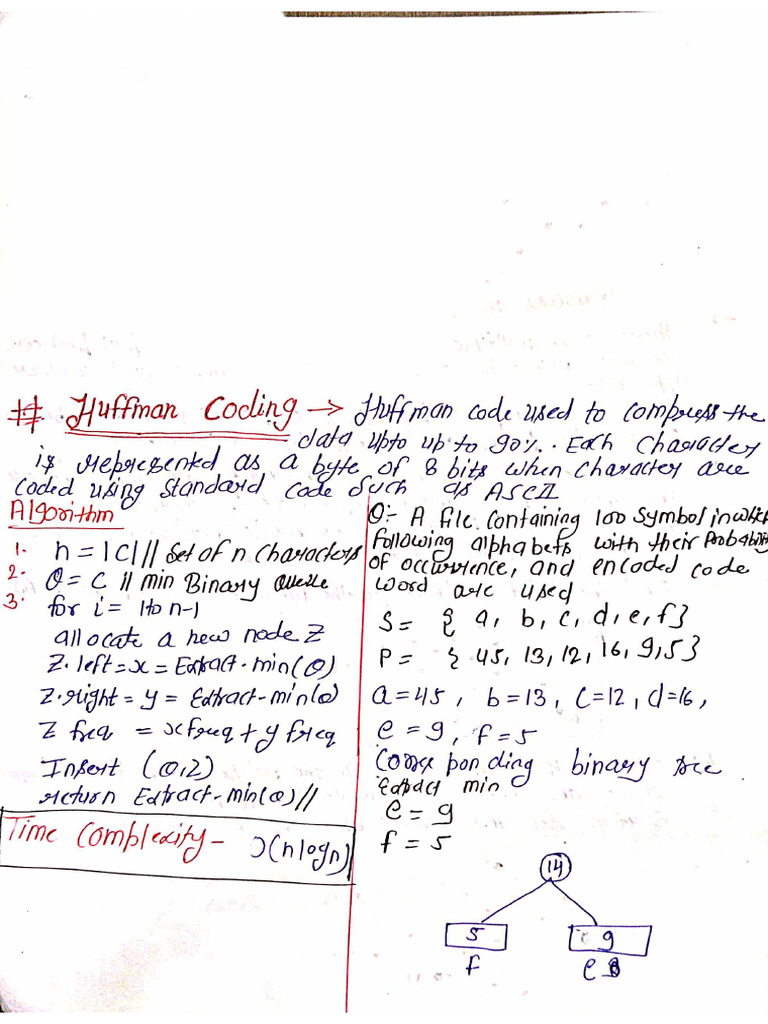 # Huffman Coding → Huffman code used to compress the
data upto up to 90%. Each character
is represented as a byte of 8 bits when character are
coded using standard code such as ASCII
Algorithm
1. n = |C| // set of n characters
2. Q = C // min Binary queue
3. for i = 1 to n-1
allocate a new node Z
Z.left = x = Extract-min(Q)
Z.right = y = Extract-min(Q)
Z freq = x freq + y freq
Insert (Q,Z)
return Extract-min(Q) //
Time Complexity - O(n logn)
Q:- A file containing 100 symbol in which
following alphabets with their Probability
of occurrence, and encoded code
word are used
S = { a, b, c, d, e, f }
P = { 45, 13, 12, 16, 9, 5 }
a = 45, b = 13, c = 12, d = 16,
e = 9, f = 5
Corresponding binary tree
Extract min
e = 9
f = 5
14
5 9
f e